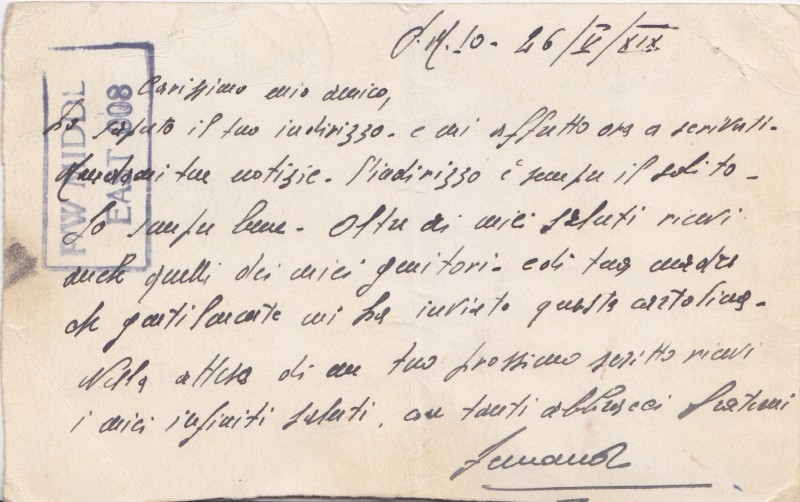 P.M. 10 - 26/V/XIX
Carissimo mio amico,
Ho saputo il tuo indirizzo - e mi affretto ora a scriverti -
Mandami tue notizie - l'indirizzo è sempre il solito -
Io sempre bene - Oltre ai miei saluti ricevi
anche quelli dei miei genitori - e di tua madre
che gentilmente mi ha inviato questa cartolina -
Nella attesa di un tuo prossimo scritto ricevi
i miei infiniti saluti, con tanti abbracci fraterni
PW MIDDL
EAST 908